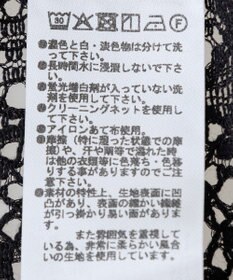 30 F
●濃色と白・淡色物は分けて洗
って下さい。
●長時間水に浸漬しないで下さ
い。
●蛍光増白剤が入っていない洗
剤を使用して下さい。
●クリーニングネットを使用し
て下さい。
●アイロンあて布使用。
●摩擦（特に湿った状態での摩
擦）や、汗や雨等で濡れた時
は他の衣類等に色落ち・色移
りする事がありますのでご注
意下さい。
●素材の特性上、生地表面に凹
凸があり、表面の細かい繊維
が引っ掛かり易い面がありま
す。
また雰囲気を重視してい
る為、非常に柔らかい風合
いの生地を使用していま